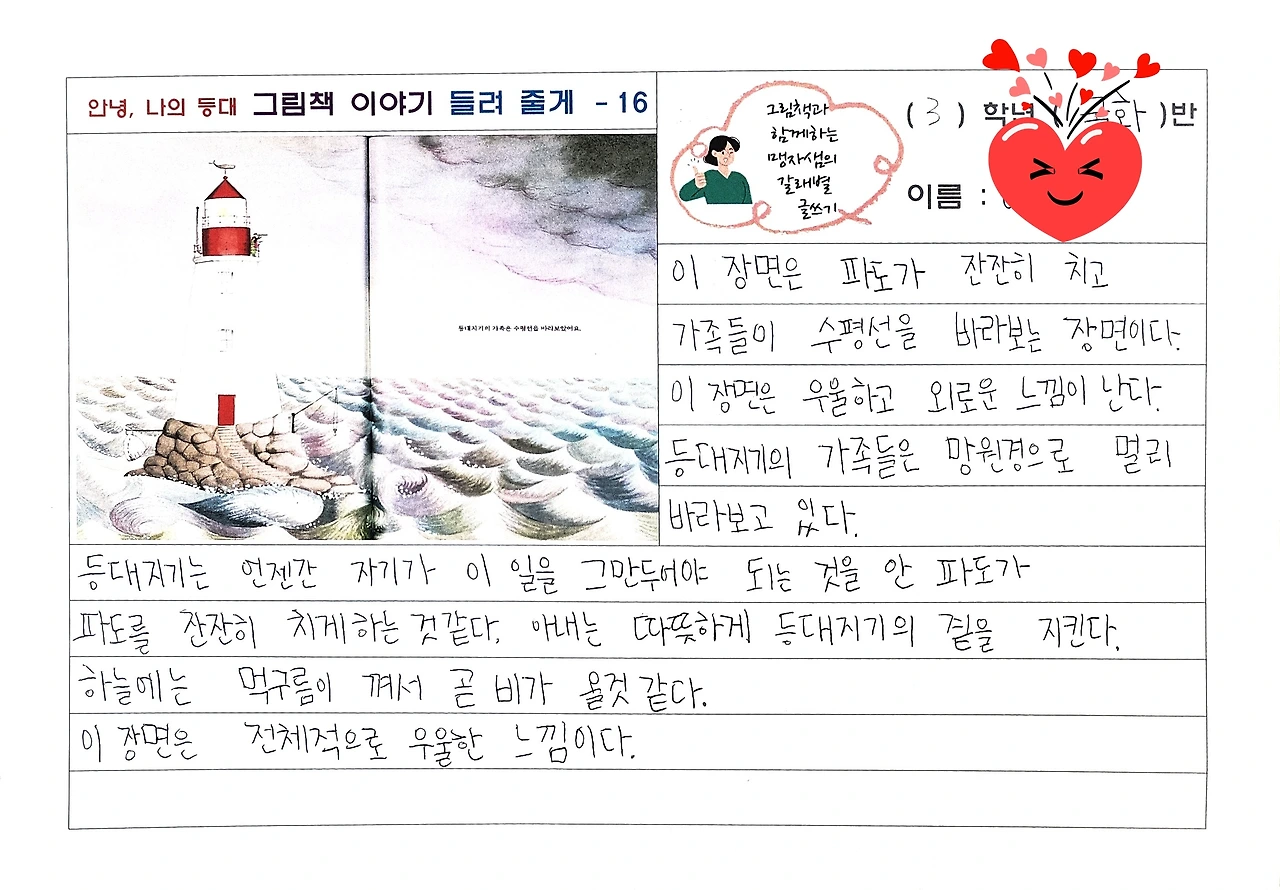 안녕, 나의 등대 그림책 이야기 들려 줄게 - 16
그림책과
함께하는
맹자샘의
갈래별
글쓰기
( 3 ) 학년 ( 화 )반
이름 :
등대지기의 가족은 수평선을 바라보았어요.
이 장면은 파도가 잔잔히 치고
가족들이 수평선을 바라보는 장면이다.
이 장면은 우울하고 외로운 느낌이 난다.
등대지기의 가족들은 망원경으로 멀리
바라보고 있다.
등대지기는 언젠간 자기가 이 일을 그만두어야 되는 것을 안 파도가
파도를 잔잔히 치게 하는 것같다. 아내는 따뜻하게 등대지기의 곁을 지킨다.
하늘에는 먹구름이 껴서 곧 비가 올것 같다.
이 장면은 전체적으로 우울한 느낌이다.